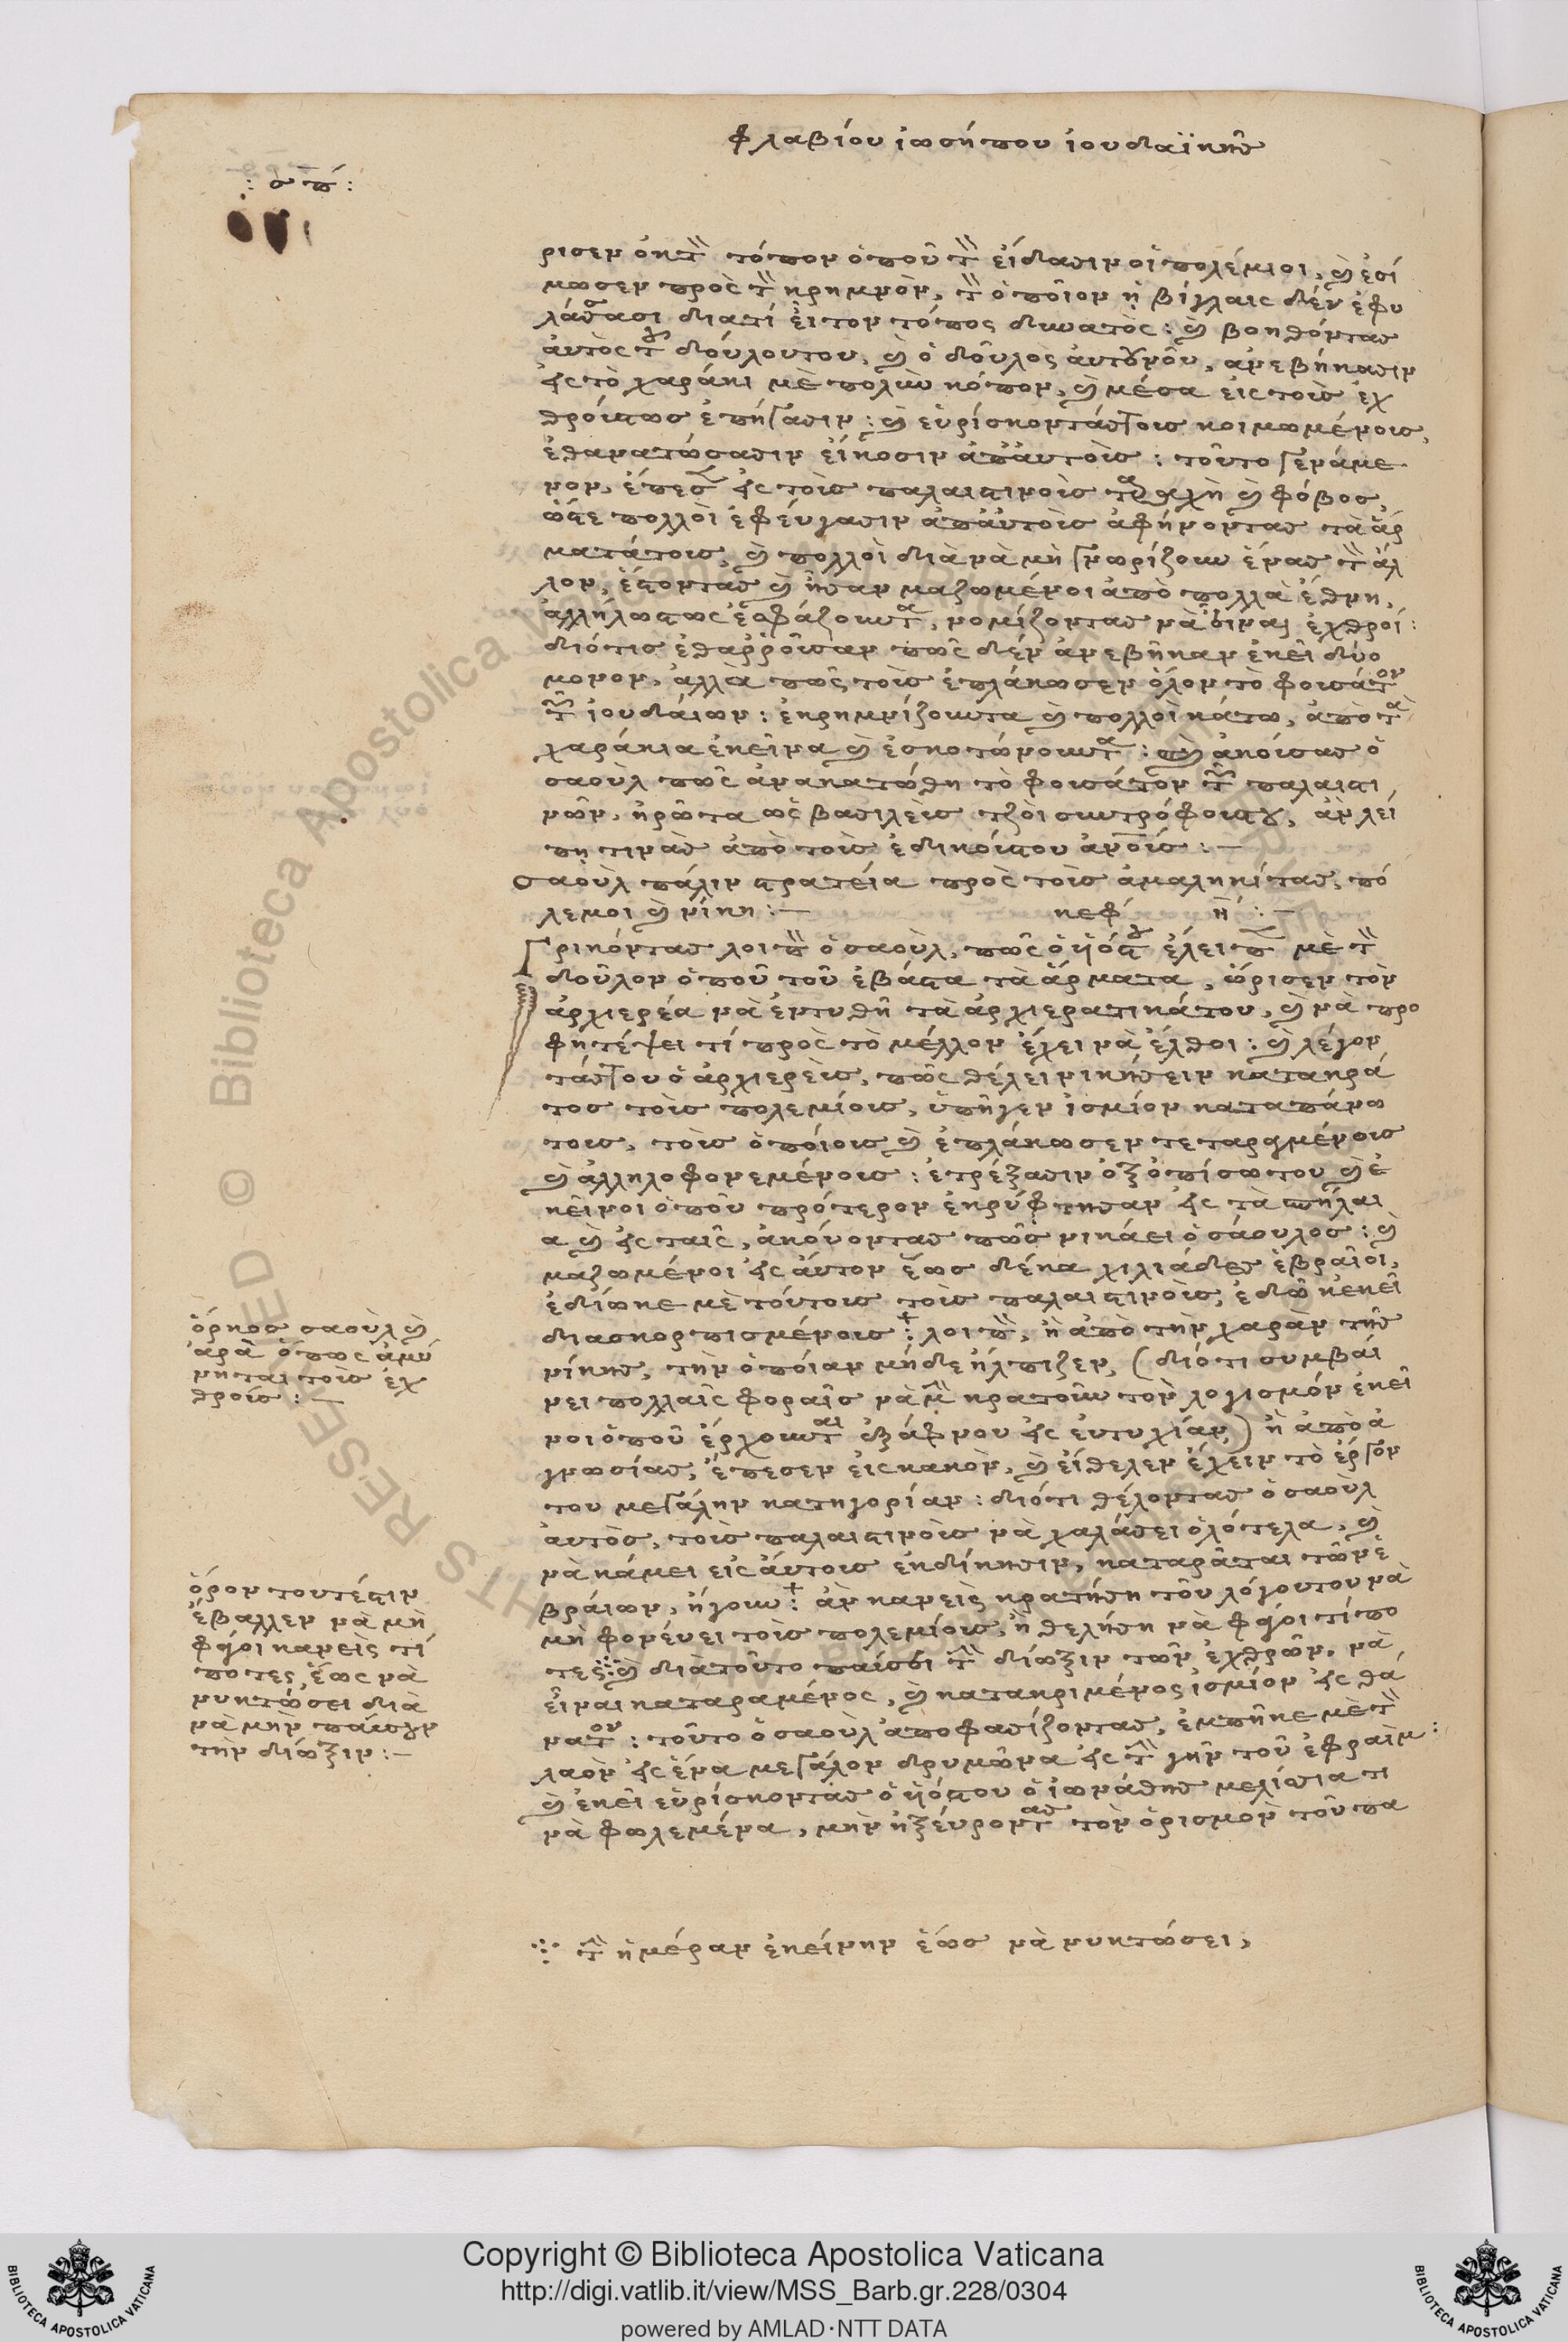 φλαβίου ἰωσήπου ἰουδαϊκῆς
: σπ :
ρισεν ὀκτ τόπον ὁποῦ τ εἴδασιν οἱ πολέμιοι, καὶ ἐσί
μωσεν πρὸς τ κρημνὸν, τ ὁποῖον ἡ βίγλαις δὲν ἐφυ
λάγασι διατί ἦτον τόπος δυνατὸς : καὶ βοηθόντας
ἀυτὸς τ δούλουτου, καὶ ὁ δοῦλος ἀυτουνοῦ, ανεβήκασιν
εἰς τὸ χαράκι μὲ πολὺν κόπον, καὶ μέσα εἰς τοὺς ἐχ
θρούτως ἐπήγασιν : καὶ εὑρίσκοντάςτους κοιμωμένους,
ἐθανατώσασιν εἴκοσιν ἀπ' ἀυτοὺς : τοῦτο γενάμε
νον, ἔπεσ εἰς τοὺς παλαιστινοὺς ταραχὴ καὶ φόβος,
ὥστε πολλοὶ ἐφεύγασιν ἀπ' ἀυτοὺς ἀφήνοντας τὰ ἄρ
ματάτους, καὶ πολλοὶ διὰ νὰ μὴ γνωρίζουν ἕνας τ ἄλ
λον, ἔστοντας καὶ ἦσαν μαζωμένοι ἀπὸ πολλὰ ἔθνη,
ἀλλήλωςτως ἐσφάζουντα, νομίζοντας νὰ εἶναι ἐχθροί :
διότις ἐθαῤῥοῦσαν πῶς δὲν ἀνεβῆκαν ἐκεῖ δύο
μονον, ἀλλὰ πῶς τοὺς ἐπλάκωσεν ὅλον τὸ φουσάτον
τ ἰουδάιων : ἐκρημνίζουντα καὶ πολλοὶ κάτω, ἀπὸ τὰ
χαράκια ἐκεῖνα καὶ ἐσκοτώνουντα : καὶ ἀκούσας ὁ
σαοὺλ πῶς ἀνακατώθη τὸ φουσάτον τ παλαιστι
νῶν, ἠρῶτα ὡς βασιλεὺς τζοὶ συντρόφουςτου, ἂν λεί
πη τινὰς ἀπὸ τοὺς ἐδικούςτου ἀνους : —
σαοὺλ πάλιν στρατεία πρὸς τοὺς ἀμαληκίτας, πό
λεμοι καὶ νίκη : — κεφ η : —
Γρικόντας λοιπ ὁ σαοὺλ, πῶς ὁ ὑιόςτου ἔλειπ μὲ τ
δοῦλον ὁποῦ τοῦ ἐβάστα τὰ ἄρματα, ὥρισεν τὸν
ἀρχιερέα νὰ ἐντυθῆ τὰ ἀρχιερατικάτου, καὶ νὰ προ
φητέψει τί πρὸς τὸ μέλλον ἔχει νὰ ἔλθοι : καὶ λέγον
τάςτου ὁ ἀρχιερεὺς, πῶς θέλει νικήσειν κατακρά
τος τοὺς πολεμίους, ὑπῆγεν ἰσμίον καταπάνω
τους, τοὺς ὁποίους καὶ ἐπλάκωσεν τεταραγμένους
καὶ ἀλληλοφονεμένους : ἐτρέξασιν ὀξοπίσωτου καὶ ἐ
κεῖνοι ὁποῦ πρότερον ἐκρύφτησαν εἰς τὰ σπήλαι
α καὶ εἰς ταῖς, ἀκούοντας πῶς νικάει ὁ σάουλος : καὶ
μαζωμένοι εἰς ἀυτον ἕως δέκα χιλιάδες ἑβραῖοι,
ἐδίωκε μὲ τούτους τοὺς παλαιστινοὺς, ἐδῶ κ' ἐκεῖ
διασκορπισμένους : λοιπ, ἢ ἀπὸ τὴν χαρὰν τῆς
νίκης, τὴν ὁποίαν μήδε ἤλπιζεν, (διότι συμβαί
νει πολλαῖς φοραῖς νὰ μ κρατοῦν τὸν λογισμόν ἐκεῖ
νοι ὁποῦ ἔρχουνται ἐξάφνου εἰς ἐυτυχίαν) ἢ ἀπὸ ἀ
γνωσίας, ἔπεσεν εἰς κακὸν, καὶ εἴθελεν ἔχειν τὸ ἔργον
του μεγάλην κατηγορίαν : διότι θέλοντας ὁ σαοὺλ
ἀυτὸς, τοὺς παλαιστινοὺς νὰ χαλάσει ὁλότελα, καὶ
νὰ κάμει εἰς ἀυτους ἐκδίκησιν, καταρᾶται τῶν ἑ
βράιων, ἤγουν : ἂν κανεὶς κρατήση τοῦ λόγουτου νὰ
μὴ φονέυει τοὺς πολεμίους, ἢ θελήση νὰ φάγοι τίπο
τες : καὶ διὰ τοῦτο παύσει τ δίωξιν τῶν ἐχθρῶν, νὰ
εἶναι καταραμένος, καὶ κατακριμένος ἰσμίον εἰς θά
νατον : τοῦτο ὁ σαοὺλ ἀποφασίζοντας, ἐμπῆκε μὲ τ
λαὸν εἰς ἕνα μεγάλον δρυμῶνα εἰς τ γῆν τοῦ ἐφραὶμ :
καὶ ἐκεῖ εὑρίσκοντας ὁ ὑιόςτου ὁ ἰωνάθης μελίσσια τι
νὰ φωλεμένα, μὴν ἠξέυροντας τὸν ὁρισμὸν τοῦ πα
ὅρκος σαοὺλ καὶ
ἀρὰ ὅπως ἀμύ
νηται τοὺς ἐχ
θρούς : —
ὅρον τουτέστιν
ἔβαλλεν νὰ μὴ
φάγοι κανεὶς τί
ποτες, ἕως νὰ
νυκτώσει διὰ
νὰ μὴν παύσουν
τὴν δίωξιν : —
τ ἡμέραν ἐκείνην ἕως νὰ νυκτώσει,
Copyright © Biblioteca Apostolica Vaticana
http://digi.vatlib.it/view/MSS_Barb.gr.228/0304
powered by AMLAD·NTT DATA